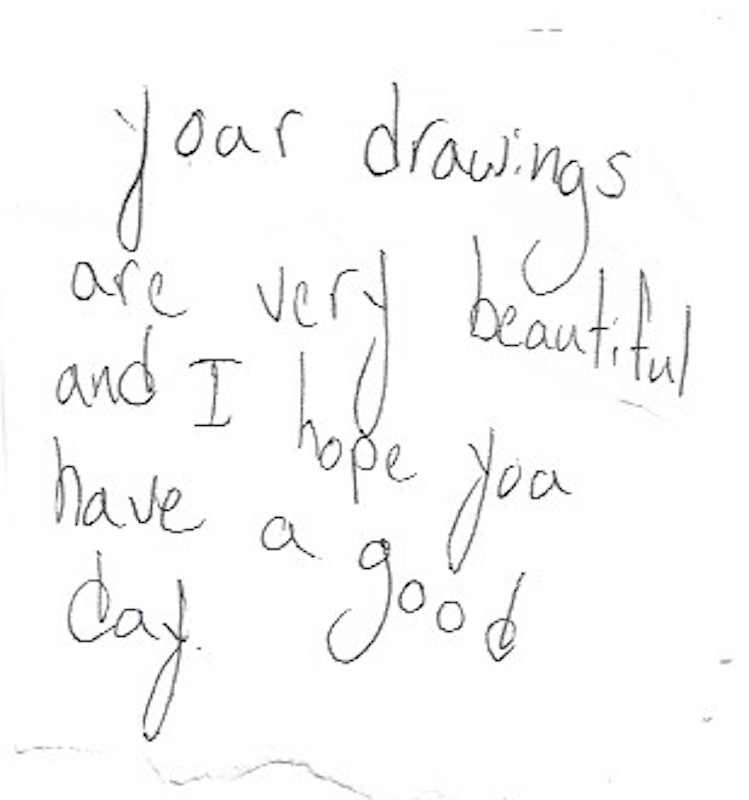 your drawings
are very beautiful
and I hope you
have a good
day.